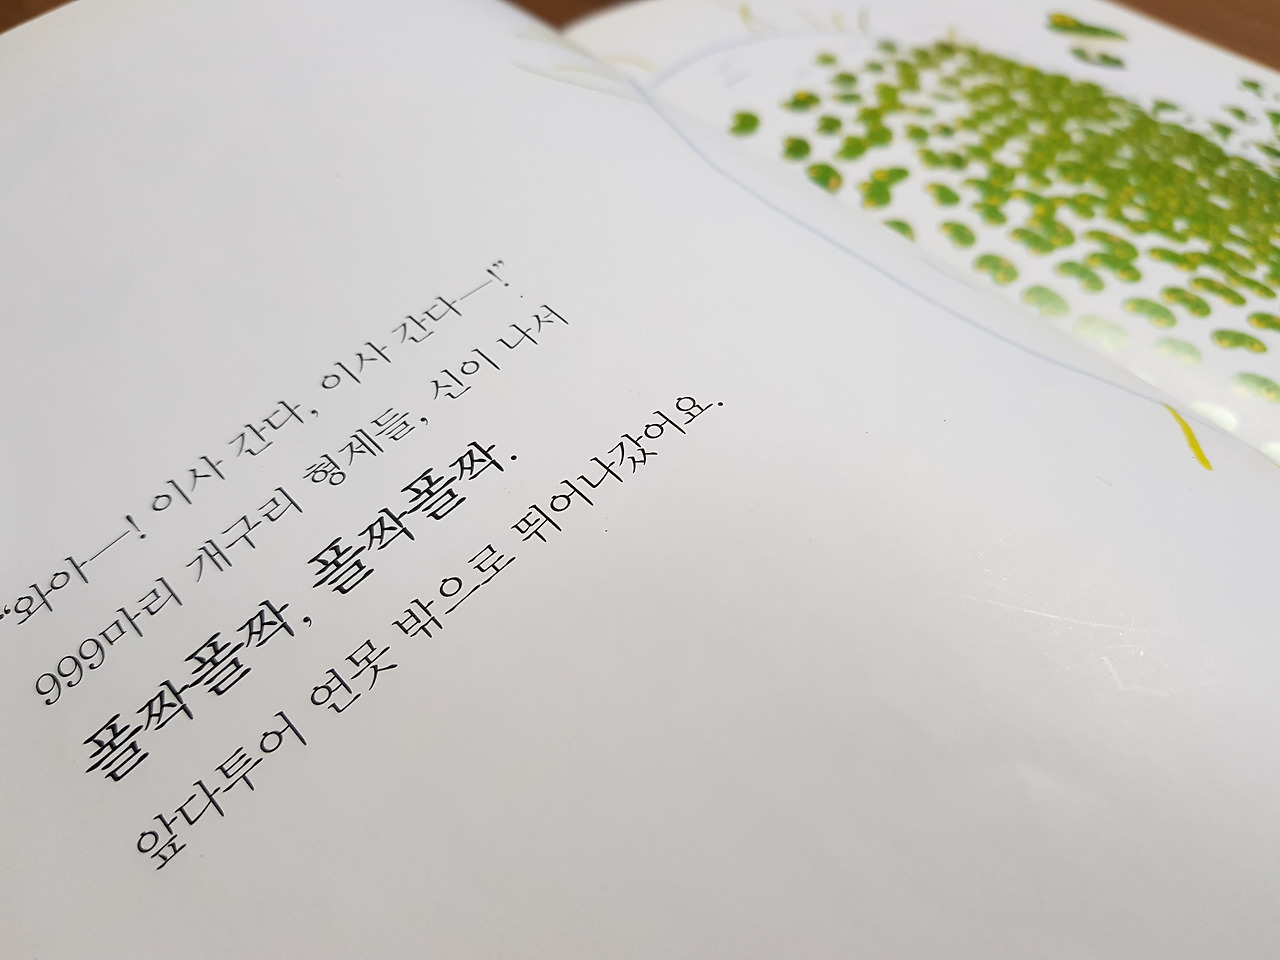 “와아—! 이사 간다, 이사 간다—!”
999마리 개구리 형제들, 신이 나서
폴짝폴짝, 폴짝폴짝.
앞다투어 연못 밖으로 뛰어나갔어요.